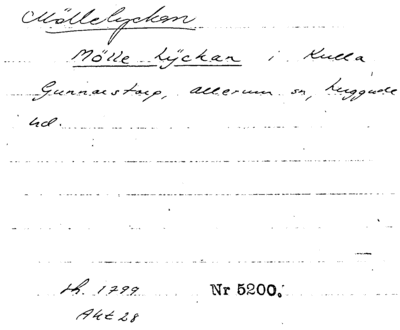 Möllelyckan
Mölle Lÿckan i Kulla
Gunnarstorp, Allerum sn, Luggude
hd.
sh. 1799 Nr 5200.
Akt 28